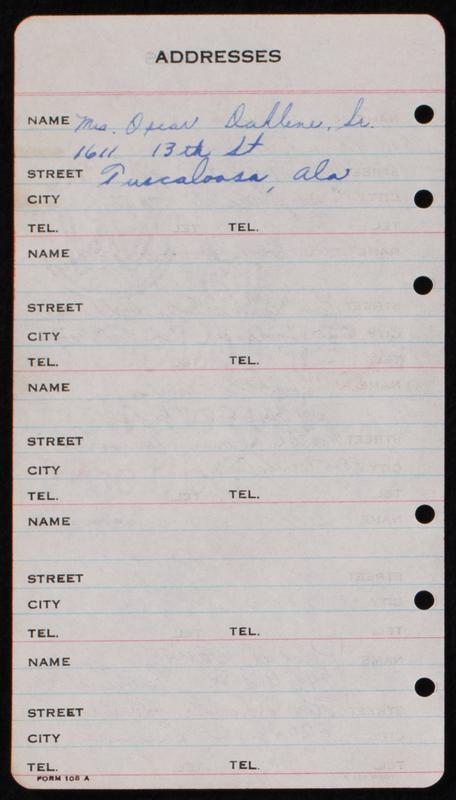 ADDRESSES
NAME Mrs. Oscar Dahlene, Sr.
1611 13th St
STREET Tuscaloosa, Ala
CITY
TEL. TEL.
NAME
STREET
CITY
TEL. TEL.
NAME
STREET
CITY
TEL. TEL.
NAME
STREET
CITY
TEL. TEL.
NAME
STREET
CITY
TEL. TEL.
FORM 108 A